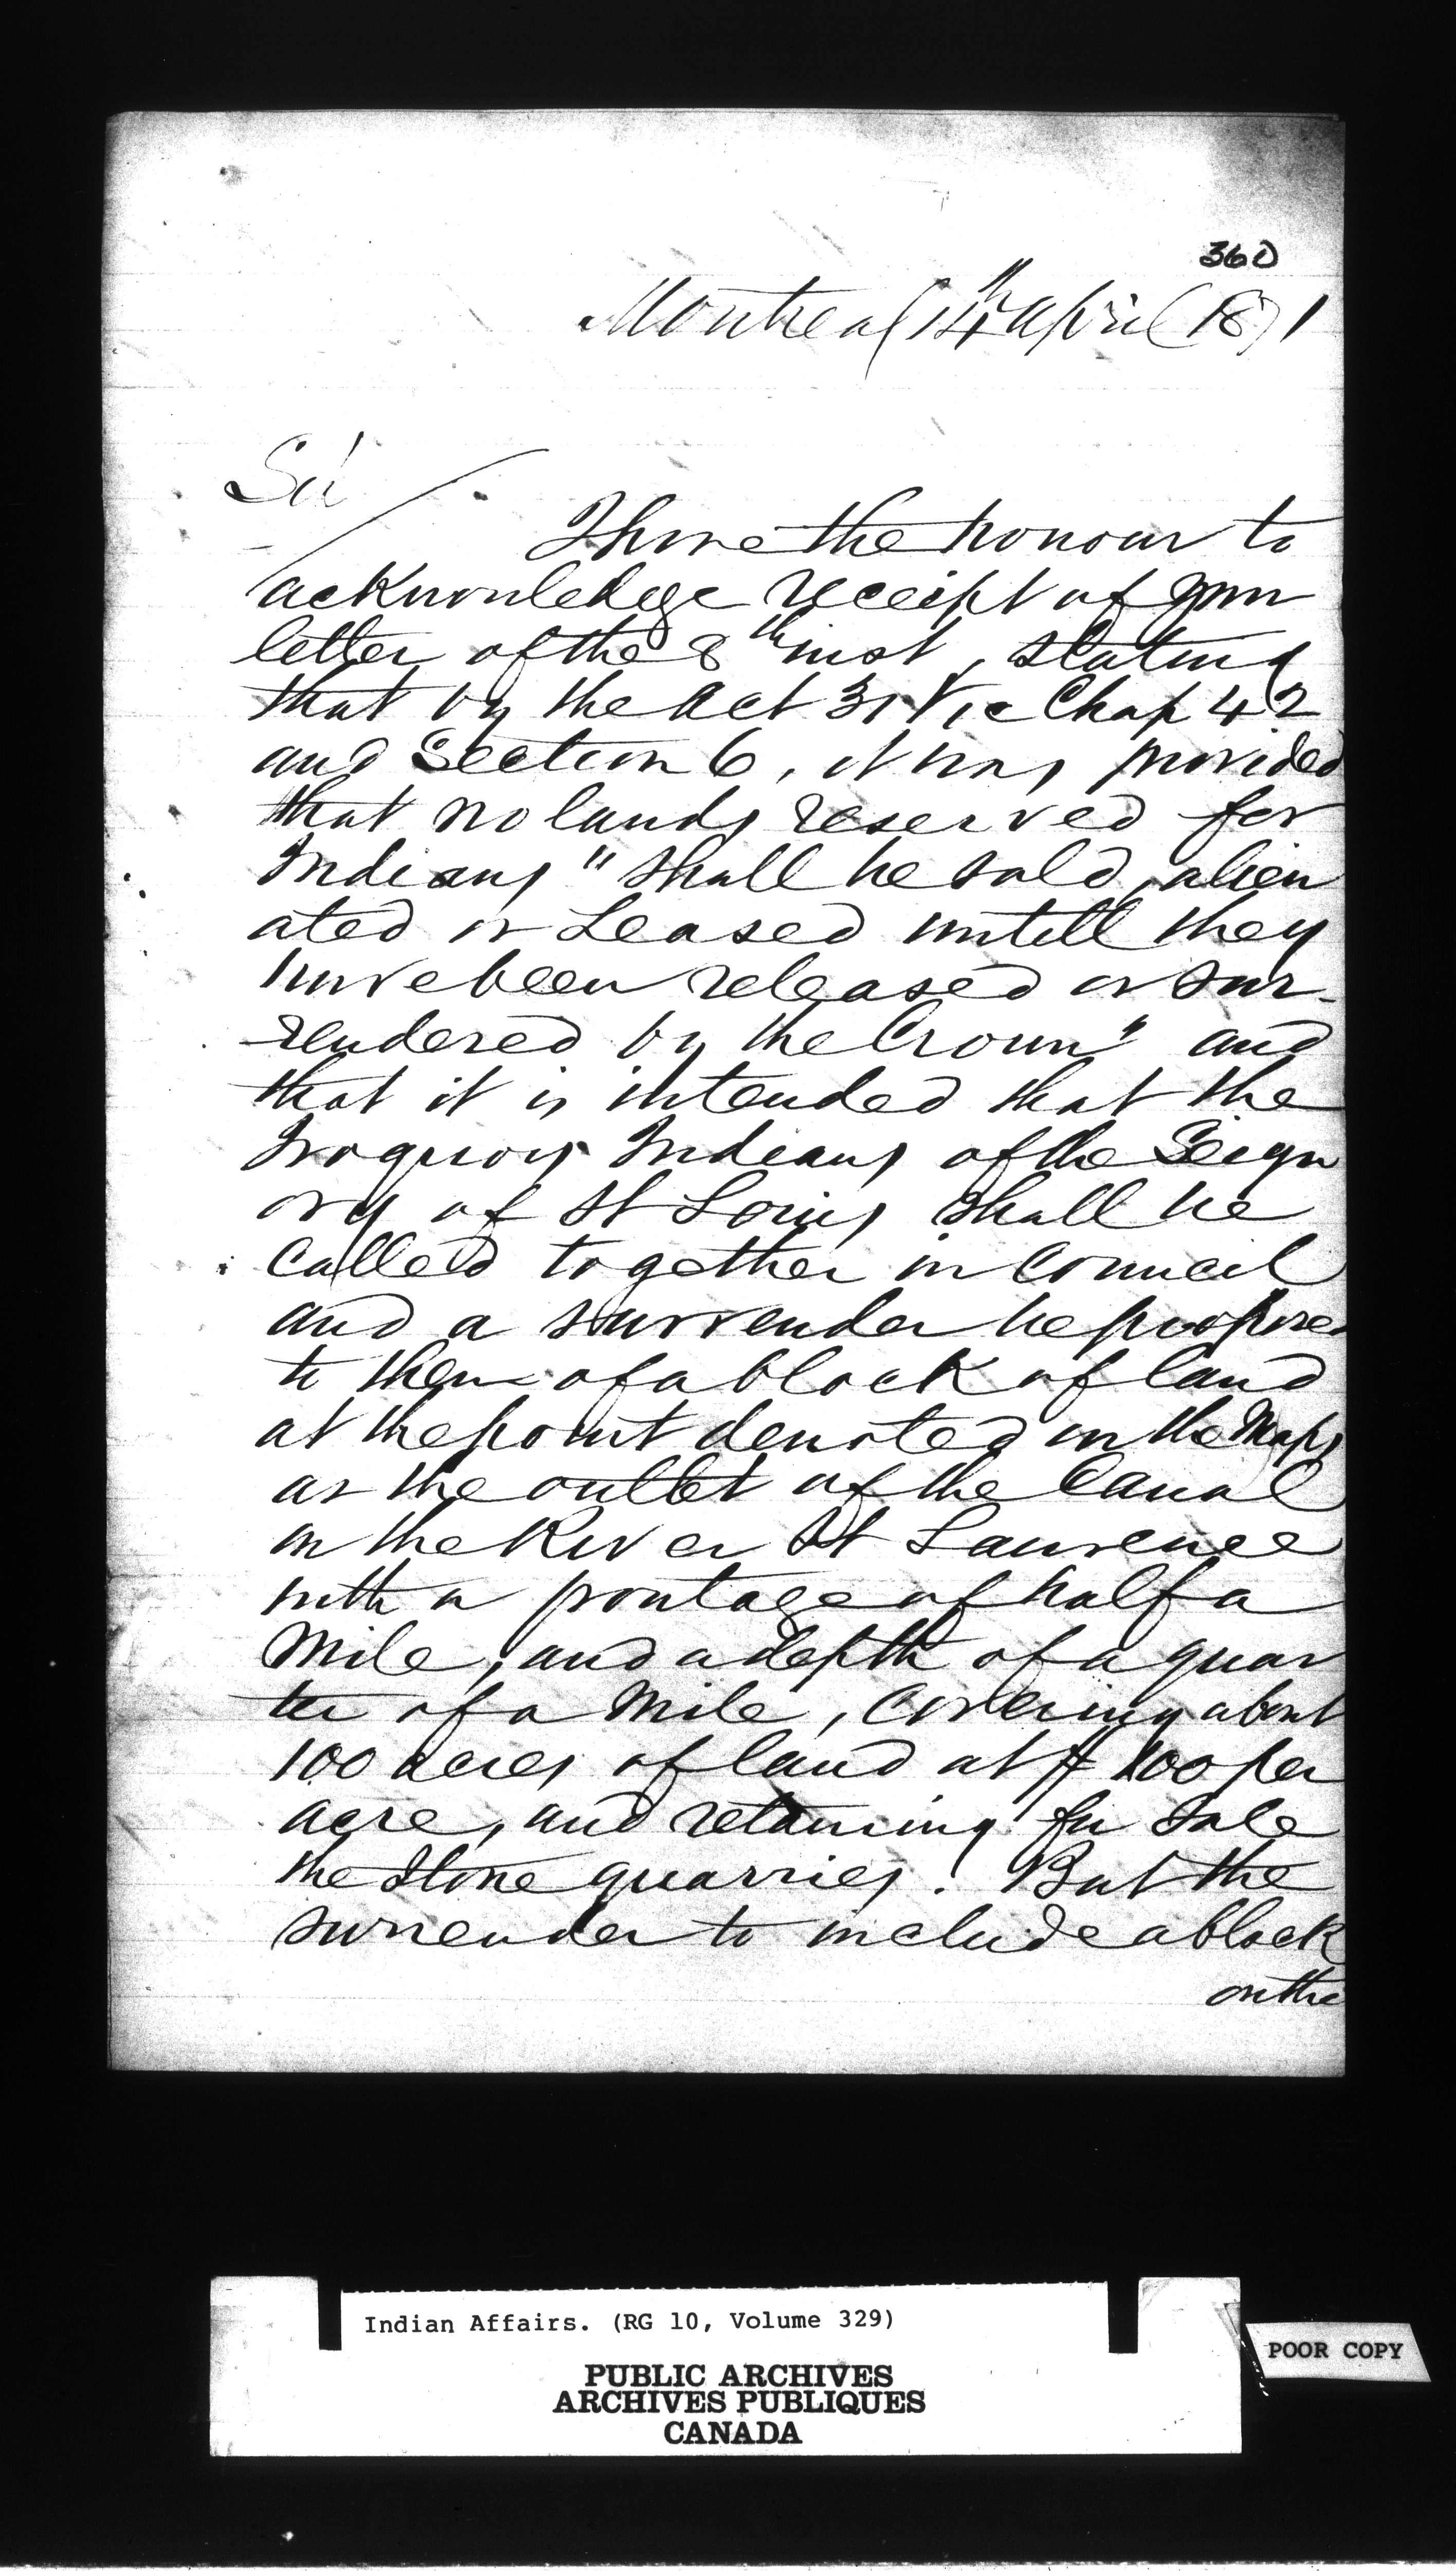 360
Montreal 14th April 1871
Sir
I have the honour to
acknowledge receipt of your
letter of the 8th inst, stating
that by the Act 31 Vic Chap 42
and Section 6, it was provided
that no lands reserved for
Indians "shall be sold, alien
ated or Leased untill they
have been released or sur-
rendered by the Crown" and
that it is intended that the
Iroquois Indians of the Seign
ory of St Louis shall be
called together in Council
and a surrender be proposed
to them of a block of land
at the point denoted on the Maps
as the outlet of the Canal
on the River St Lawrence
with a frontage of half a
Mile, and a depth of a quar
ter of a Mile, Covering about
100 acres of land at $100 per
acre, and retaining for Sale
the Stone quarries! But the
surrender to include a block
on the
Indian Affairs. (RG 10, Volume 329)
PUBLIC ARCHIVES
ARCHIVES PUBLIQUES
CANADA
POOR COPY